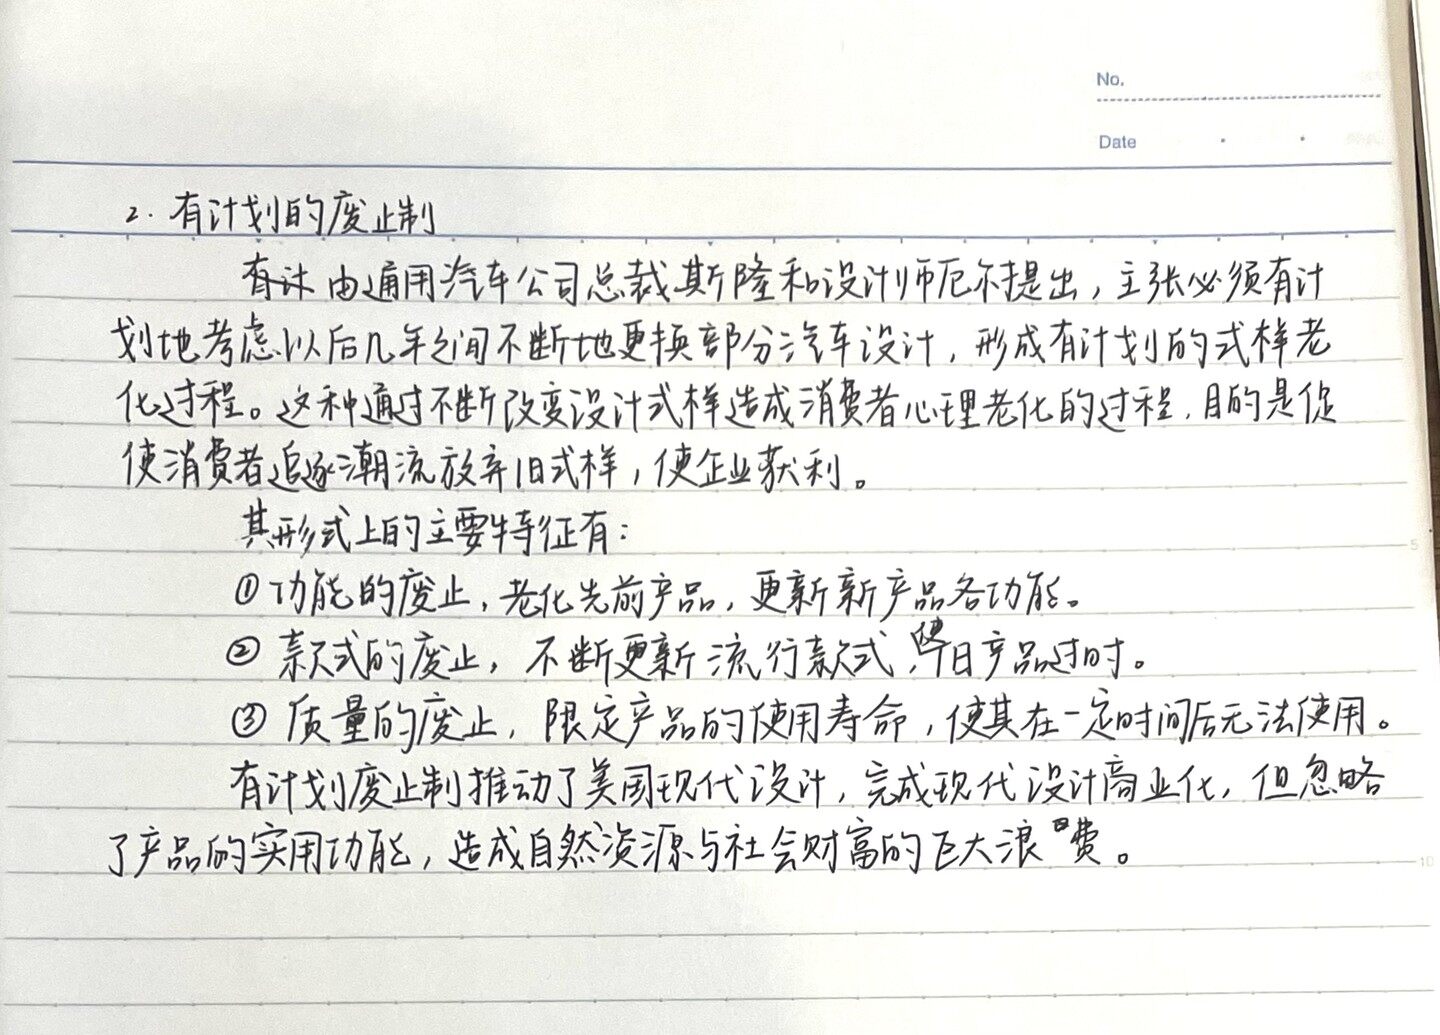 No.
Date
2. 有计划的废止制
有计由通用汽车公司总裁斯隆和设计师厄尔提出，主张必须有计
划地考虑以后几年之间不断地更换部分汽车设计，形成有计划的式样老
化过程。这种通过不断改变设计式样造成消费者心理老化的过程，目的是促
使消费者追逐潮流放弃旧式样，使企业获利。
其形式上的主要特征有：
①功能的废止，老化先前产品，更新新产品各功能。
②款式的废止，不断更新流行款式，使今日产品过时。
③质量的废止，限定产品的使用寿命，使其在一定时间后无法使用。
有计划废止制推动了美国现代设计，完成现代设计商业化，但忽略
了产品的实用功能，造成自然资源与社会财富的巨大浪费。
5
10